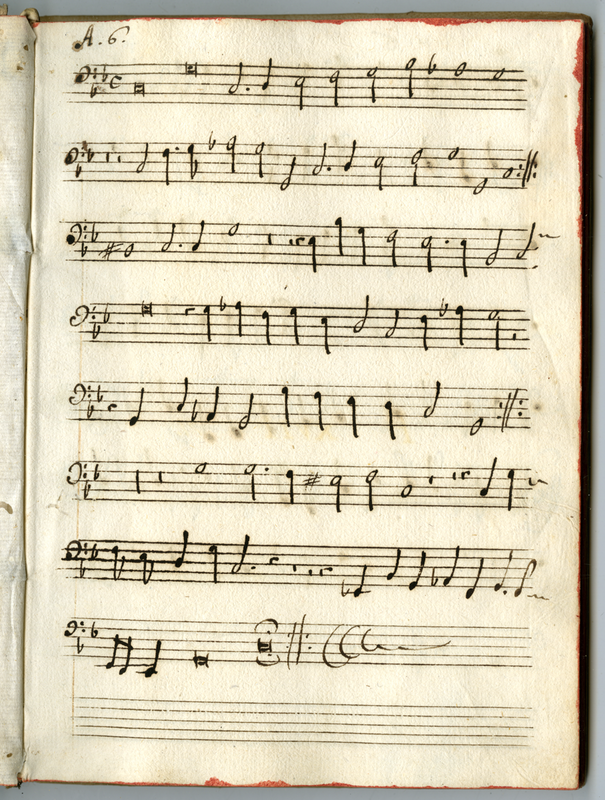 A. 6.